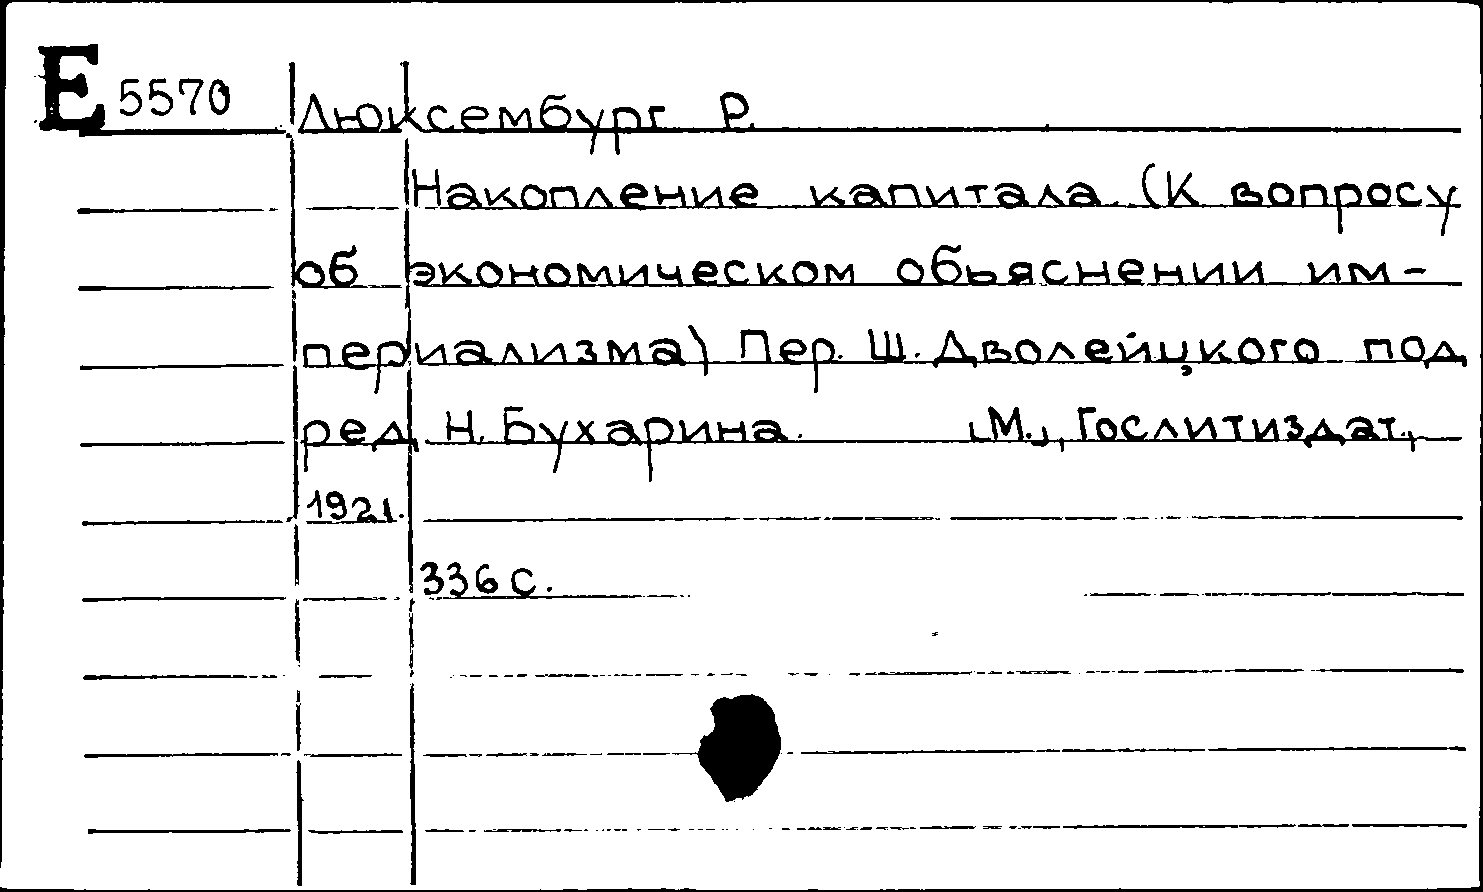 Е 5570 Люксембург Р.
Накопление капитала. (К вопросу
об экономическом обьяснении им-
периализма) Пер. Ш. Дволейцкого под
ред. Н. Бухарина. [М.], Гослитиздат.,
1921.
336 с.